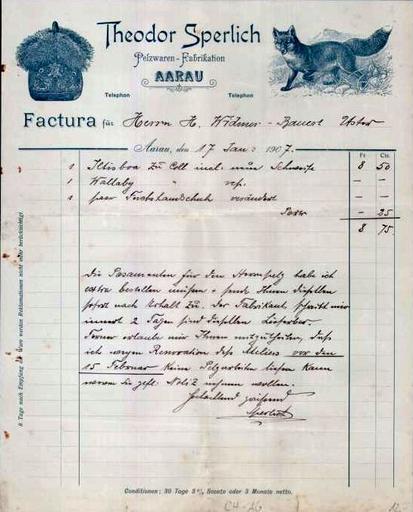 Theodor Sperlich
Pelzwaren-Fabrikation
AARAU
Telephon Telephon
Factura für Herrn H. Widmer-Bauert Uster
Aarau, den 17 Jan: 1907.
Fr Cts
1 zu Coll incl. neue Schweife 8 50
1 Wallaby " rep. — —
1 paar Fuchshandschuh verändert — —
Porto — 25
8 75.
Die Posamenten für den Herrenpelz habe ich
extra bestellen müssen & sende Ihnen dieselben
sofort nach Erhalt zu. Der Fabrikant schreibt mir
innert 2 Tagen sind dieselben lieferbar.
Ferner erlaube mir Ihnen mitzutheilen, dass
ich wegen Renovation des Ateliers vor den
15 Februar keine Pelzarbeiten liefern kann
wovon Sie gefl. Notiz nehmen wollen.
Hochachtend grüssend
Sperlich
8 Tage nach Empfang der Ware werden Reklamationen nicht mehr berücksichtigt
Conditionen: 30 Tage 3%, Sconto oder 3 Monate netto.